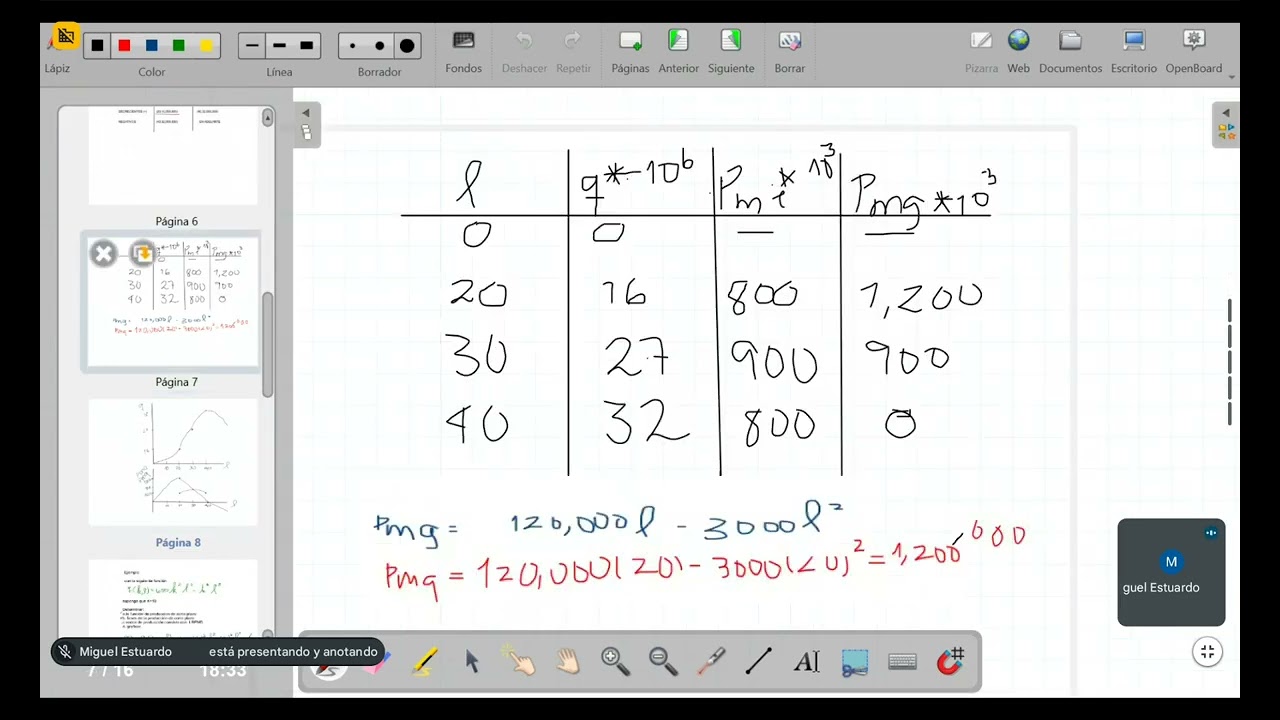 Lápiz
Color
Línea
Borrador
Fondos
Deshacer
Repetir
Páginas
Anterior
Siguiente
Borrar
Pizarra
Web
Documentos
Escritorio
OpenBoard
Página 6
Página 7
Página 8
7 / 16
18:33
l q*10^6 Pmt*10^3 Pmg*10^-3
0 0 — —
20 16 800 1,200
30 27 900 900
40 32 800 0
Pmg = 120,000l - 3000l²
Pmg = 120,000(20) - 3000(20)² = 1,200,000
M
guel Estuardo
Miguel Estuardo está presentando y anotando